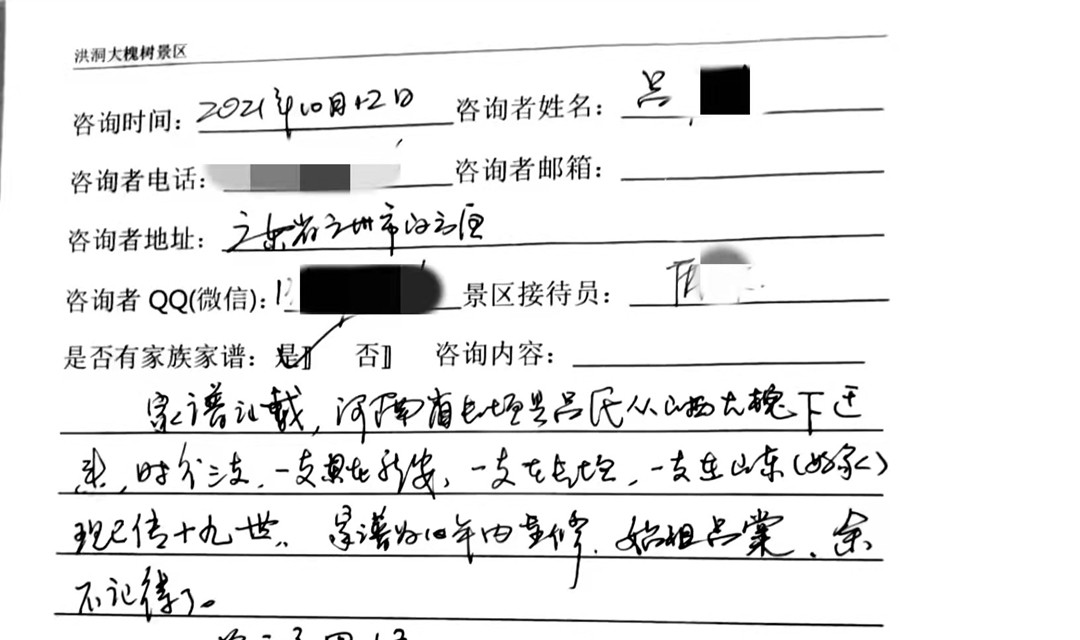 洪洞大槐树景区
咨询时间：2021年10月12日 咨询者姓名：吕
咨询者电话： 咨询者邮箱：
咨询者地址：广东省广州市白云区
咨询者 QQ(微信)：1 景区接待员：
是否有家族家谱：是】 否】 咨询内容：
家谱记载，河南省长垣县吕氏从山西大槐下迁
来，时分三支，一支真在新安、一支在长垣，一支在山东（
现已传十九世。家谱为10年内重修，始祖吕棠、余
不记得了。